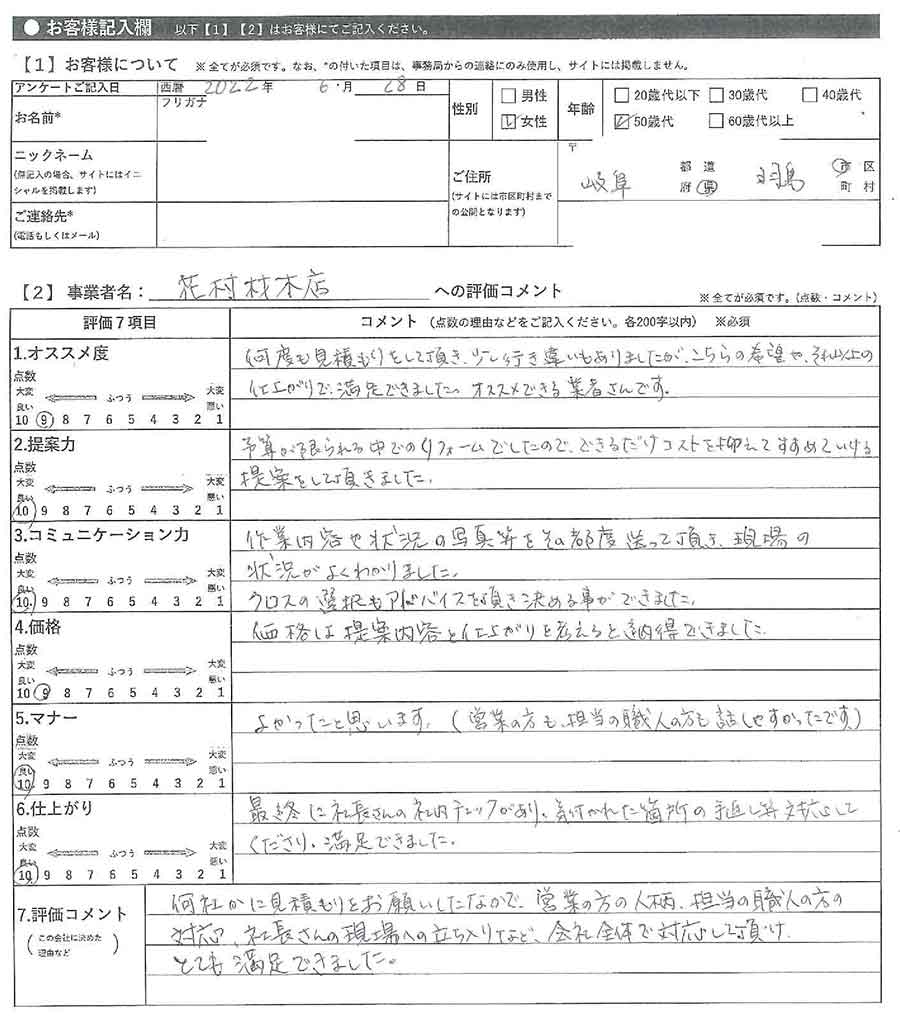 ● お客様記入欄 以下【1】【2】はお客様にてご記入ください。
【1】お客様について ※全てが必須です。なお、*の付いた項目は、事務局からの連絡にのみ使用し、サイトには掲載しません。
アンケートご記入日 西暦 2022年 6・月 28日
性別 □男性 □女性
年齢 □20歳代以下 □30歳代 □40歳代 □50歳代 □60歳代以上
お名前* フリガナ
ニックネーム
(無記入の場合、サイトにはイニシャルを掲載します)
ご住所 〒
(サイトには市区町村までの公開となります)
岐阜 都道府県 羽島 市区町村
ご連絡先*
(電話もしくはメール)
【2】事業者名:花村材木店 への評価コメント
※全てが必須です。(点数・コメント)
評価7項目 コメント (点数の理由などをご記入ください。各200字以内) ※必須
1.オススメ度
点数
大変良い ふつう 大変悪い
10 9 8 7 6 5 4 3 2 1
何度も見積もりをして頂き、少し行き違いもありましたが、こちらの希望や、それ以上の
仕上がりで、満足できました。オススメできる業者さんです。
2.提案力
点数
大変良い ふつう 大変悪い
10 9 8 7 6 5 4 3 2 1
予算が限られる中でのリフォームでしたので、できるだけコストを抑えてすすめていける
提案をして頂きました。
3.コミュニケーション力
点数
大変良い ふつう 大変悪い
10 9 8 7 6 5 4 3 2 1
作業内容や状況の写真等をその都度送って頂き、現場の
状況がよくわかりました。
クロスの選択もアドバイスを頂き決める事ができました。
4.価格
点数
大変良い ふつう 大変悪い
10 9 8 7 6 5 4 3 2 1
価格は提案内容と仕上がりを考えると納得できました。
5.マナー
点数
大変良い ふつう 大変悪い
10 9 8 7 6 5 4 3 2 1
よかったと思います。(営業の方も、担当の職人の方も話しやすかったです)
6.仕上がり
点数
大変良い ふつう 大変悪い
10 9 8 7 6 5 4 3 2 1
最終に社長さんの社内チェックがあり、気付かれた箇所の手直し等対応して
くださり、満足できました。
7.評価コメント
(この会社に決めた理由など)
何社かに見積もりをお願いしたなかで、営業の方の人柄、担当の職人の方の
対応、社長さんの現場への立ち入りなど、会社全体で対応して頂け、
とても満足できました。